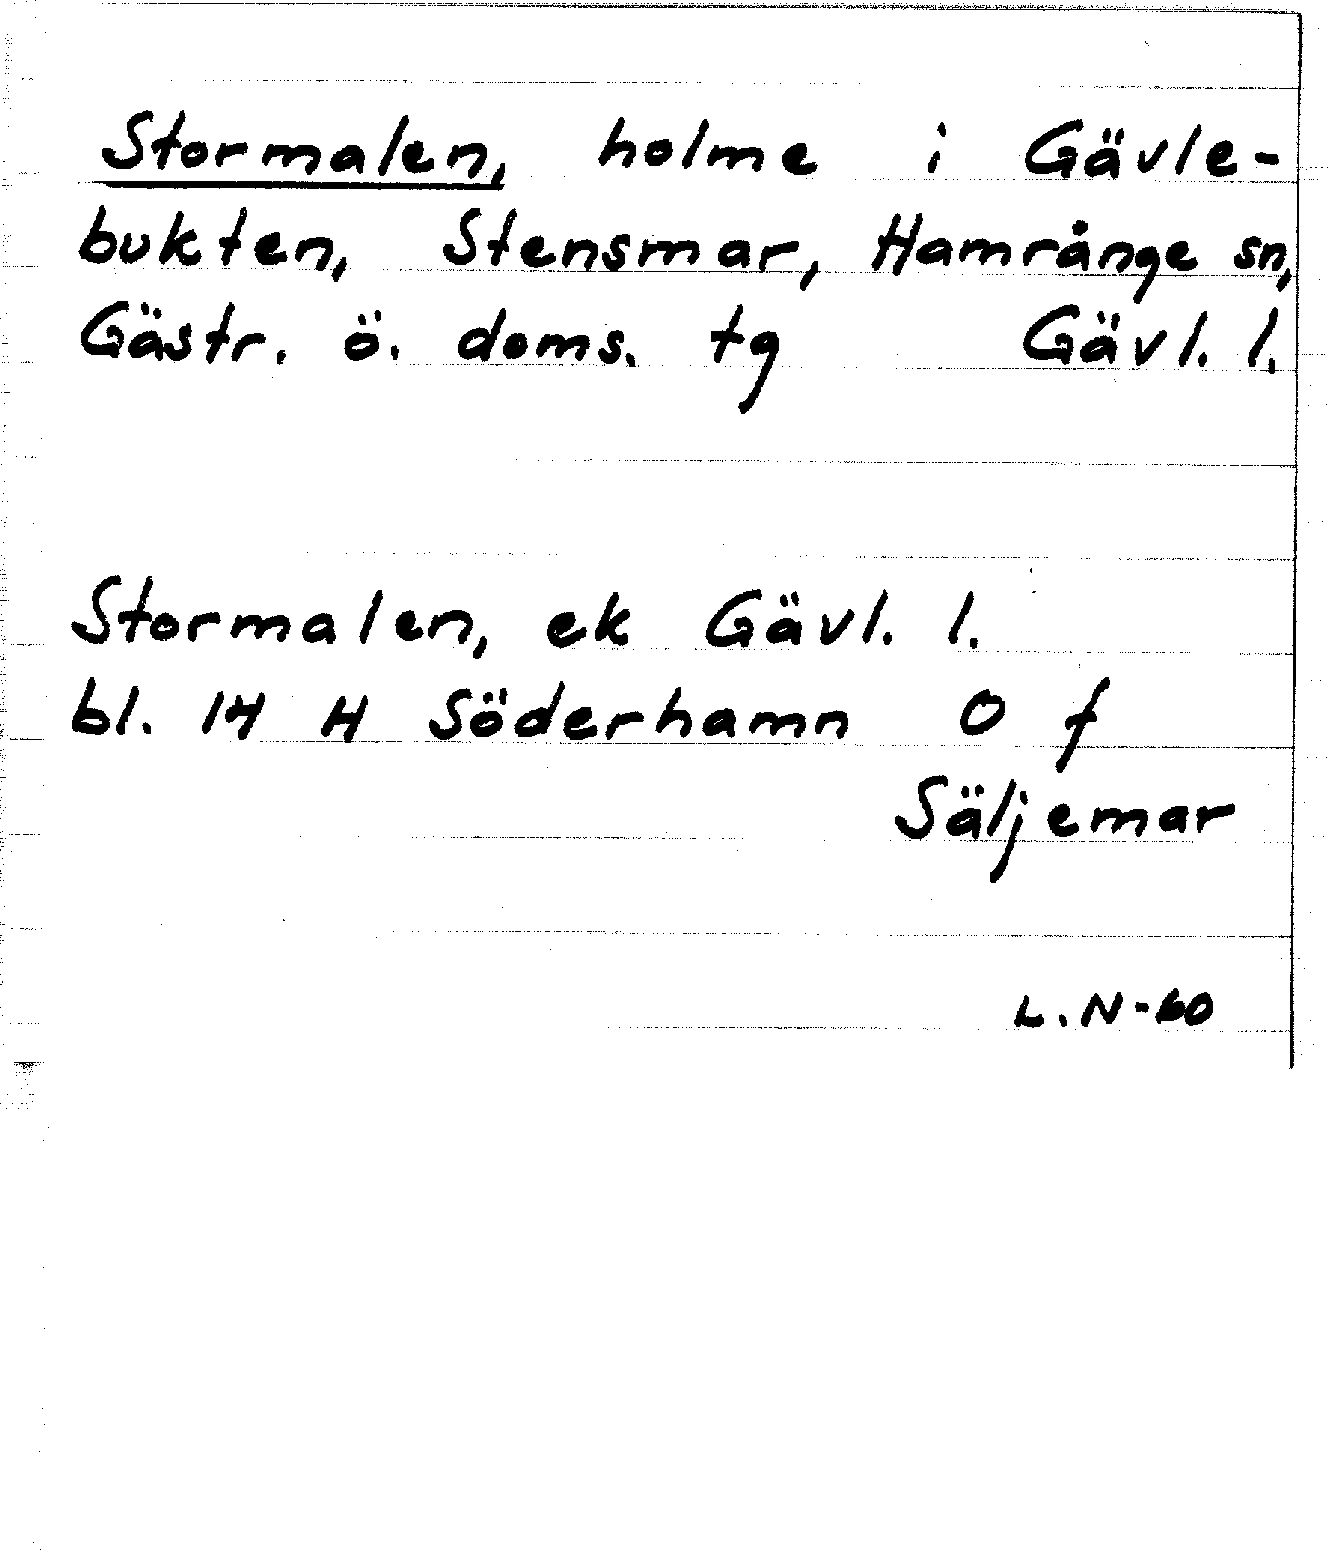 Stormalen, holme i Gävle-
bukten, Stensmar, Hamrånge sn,
Gästr. ö. doms. tg Gävl. l.
Stormalen, ek Gävl. l.
bl. 14 H Söderhamn O f
Säljemar
L.N-60